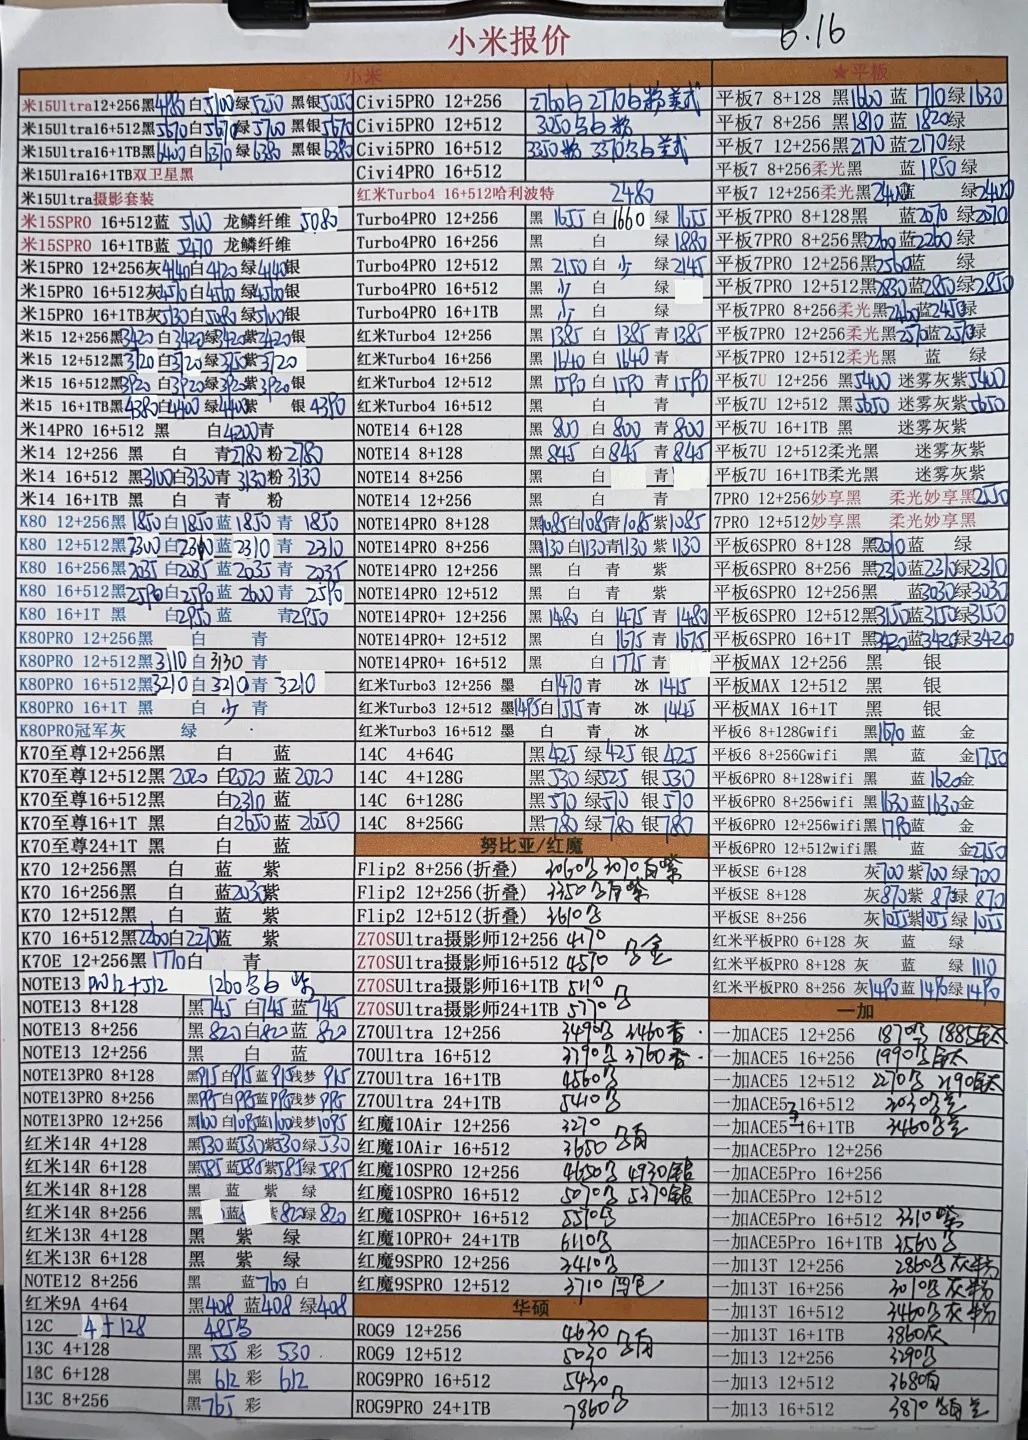 小米报价
6.16
小米
米15Ultra12+256黑4980白5100绿5250 黑银5050
米15Ultra16+512黑5670白5670绿5700 黑银5670
米15Ultra16+1TB黑6400白6370绿6380 黑银6380
米15Ulra16+1TB双卫星黑
米15Ultra摄影套装
米15SPRO 16+512蓝 5100 龙鳞纤维 5080
米15SPRO 16+1TB蓝 5470 龙鳞纤维
米15PRO 12+256灰4140白4120绿4140银
米15PRO 16+512灰4510白4500绿4500银
米15PRO 16+1TB灰5130白5080绿5100银
米15 12+256黑3420白3420绿3420紫3420银
米15 12+512黑3720白3720绿3750紫3720
米15 16+512黑3920白3920绿3920紫3920银
米15 16+1TB黑4380白4400绿4400紫 银4390
米14PRO 16+512 黑 白4200青
米14 12+256 黑 白 青2780粉2780
米14 16+512 黑3100白3130青3130粉3130
米14 16+1TB 黑 白 青 粉
K80 12+256黑1850白1850蓝1850青 1850
K80 12+512黑2300白2300蓝2310青 2310
K80 16+256黑2035白2035蓝2035青 2035
K80 16+512黑2590白2590蓝2600青 2590
K80 16+1T 黑 白2950蓝 青2950
K80PRO 12+256黑 白 青
K80PRO 12+512黑3110白3130青
K80PRO 16+512黑3210白3210青 3210
K80PRO 16+1T 黑 白 少 青
K80PRO冠军灰 绿
K70至尊12+256黑 白 蓝
K70至尊12+512黑2020白2020蓝2020
K70至尊16+512黑 白2310蓝
K70至尊16+1T 黑 白2650蓝2650
K70至尊24+1T 黑 白 蓝
K70 12+256 黑 白 蓝 紫
K70 16+256 黑 白 蓝2035紫
K70 12+512 黑 白 蓝 紫
K70 16+512黑2260白2270蓝 紫
K70E 12+256黑1770白 青
NOTE13 pro12+512 1260
NOTE13 8+128 黑745白745蓝745
NOTE13 8+256 黑820白820蓝820
NOTE13 12+256 黑 白 蓝
NOTE13PRO 8+128 黑915白915蓝915浅梦915
NOTE13PRO 8+256 黑995白995蓝995浅梦995
NOTE13PRO 12+256 黑1100白1095蓝1100浅梦1095
红米14R 4+128 黑530蓝530紫530绿530
红米14R 6+128 黑585蓝585紫585绿585
红米14R 8+128 黑 蓝 紫 绿
红米14R 8+256 蓝 820绿820
红米13R 4+128 黑 紫 绿
红米13R 6+128 黑 紫 绿
NOTE12 8+256 黑 蓝760白
红米9A 4+64 黑408蓝408绿408
12C 4+128 485
13C 4+128 黑 535彩 530
13C 6+128 黑 612彩 612
13C 8+256 黑765彩
Civi5PRO 12+256 2760白 2770
Civi5PRO 12+512 3050
Civi5PRO 16+512 3350 3370
Civi4PRO 16+512
红米Turbo4 16+512哈利波特 2480
Turbo4PRO 12+256 黑 1655白 1660绿 1655
Turbo4PRO 16+256 黑 白 绿1880
Turbo4PRO 12+512 黑 2150白 少 绿2145
Turbo4PRO 16+512 黑 少 白 绿
Turbo4PRO 16+1TB 黑 少 白 绿
红米Turbo4 12+256 黑 1385白 1385青1385
红米Turbo4 16+256 黑 1640白 1640青
红米Turbo4 12+512 黑 1590白 1590青1590
红米Turbo4 16+512 黑 白 青
NOTE14 6+128 黑 800白 800青 800
NOTE14 8+128 黑 845白845青 845
NOTE14 8+256 黑 白 青
NOTE14 12+256 黑 白 青
NOTE14PRO 8+128 黑1085白1085青1085紫1085
NOTE14PRO 8+256 黑1130白1130青1130紫1130
NOTE14PRO 12+256 黑 白 青 紫
NOTE14PRO 12+512 黑 白 青 紫
NOTE14PRO+ 12+256 黑1480白1475青1480
NOTE14PRO+ 12+512 黑 白1675青1675
NOTE14PRO+ 16+512 黑 白1775青
红米Turbo3 12+256 墨 白1470青 冰1415
红米Turbo3 12+512 墨1495白1515青 冰1445
红米Turbo3 16+512 墨 白 青 冰
14C 4+64G 黑425绿425银425
14C 4+128G 黑530绿525银530
14C 6+128G 黑570绿570银570
14C 8+256G 黑780绿780银780
努比亚/红魔
Flip2 8+256(折叠) 3060 3070
Flip2 12+256(折叠) 3350
Flip2 12+512(折叠) 3610
Z70SUltra摄影师12+256 4170
Z70SUltra摄影师16+512 4570
Z70SUltra摄影师16+1TB 5110
Z70SUltra摄影师24+1TB 5770
Z70Ultra 12+256 3490 3460
70Ultra 16+512 3790 3760
Z70Ultra 16+1TB 4560
Z70Ultra 24+1TB 5410
红魔10Air 12+256 3270
红魔10Air 16+512 3650
红魔10SPRO 12+256 4650 4930银
红魔10SPRO 16+512 5070 5370银
红魔10SPRO+ 16+512 5570
红魔10PRO+ 24+1TB 6110
红魔9SPRO 12+256 3410
红魔9SPRO 12+512 3710
华硕
ROG9 12+256 4630
ROG9 12+512 5030
ROG9PRO 16+512 5430
ROG9PRO 24+1TB 7860
★平板
平板7 8+128 黑1600蓝 1710绿1630
平板7 8+256 黑1810蓝 1820绿
平板7 12+256 黑2170蓝 2170绿
平板7 8+256柔光黑 蓝 1950绿
平板7 12+256柔光黑2400蓝 绿2400
平板7PRO 8+128黑 蓝2070绿2070
平板7PRO 8+256黑2260蓝2260绿
平板7PRO 12+256黑2560蓝 绿
平板7PRO 12+512黑2830蓝2850绿2850
平板7PRO 8+256柔光黑2460蓝2450绿
平板7PRO 12+256柔光黑2570蓝2570绿
平板7PRO 12+512柔光黑 蓝 绿
平板7U 12+256 黑5400 迷雾灰紫5400
平板7U 12+512 黑5650 迷雾灰紫5650
平板7U 16+1TB黑 迷雾灰紫
平板7U 12+512柔光黑 迷雾灰紫
平板7U 16+1TB柔光黑 迷雾灰紫
7PRO 12+256妙享黑 柔光妙享黑2550
7PRO 12+512妙享黑 柔光妙享黑
平板6SPRO 8+128 黑2010蓝 绿
平板6SPRO 8+256 黑2310蓝2310绿2310
平板6SPRO 12+256黑 蓝3030绿3030
平板6SPRO 12+512黑3150蓝3150绿3150
平板6SPRO 16+1T 黑3420蓝3420绿3420
平板MAX 12+256 黑 银
平板MAX 12+512 黑 银
平板MAX 16+1T 黑 银
平板6 8+128Gwifi 黑1670蓝 金
平板6 8+256Gwifi 黑 蓝 金1750
平板6PRO 8+128wifi 黑 蓝1620金
平板6PRO 8+256wifi 黑1630蓝1630金
平板6PRO 12+256wifi黑1790蓝 金
平板6PRO 12+512wifi黑 蓝 金2750
平板SE 6+128 灰700紫700绿700
平板SE 8+128 灰870紫875绿870
平板SE 8+256 灰1055紫1055绿1055
红米平板PRO 6+128 灰 蓝 绿
红米平板PRO 8+128 灰 蓝 绿1110
红米平板PRO 8+256 灰1490蓝1490绿1490
一加
一加ACE5 12+256 1870 1885钛
一加ACE5 16+256 1990
一加ACE5 12+512 2270 2190钛
一加ACE5 16+512 3030
一加ACE5 16+1TB 3460
一加ACE5Pro 12+256
一加ACE5Pro 16+256
一加ACE5Pro 12+512
一加ACE5Pro 16+512 3310紫
一加ACE5Pro 16+1TB 3560
一加13T 12+256 2860 灰粉
一加13T 16+256 3070 灰粉
一加13T 16+512 3460 灰粉
一加13T 16+1TB 3860灰
一加13 12+256 3290
一加13 12+512 3680白
一加13 16+512 3870